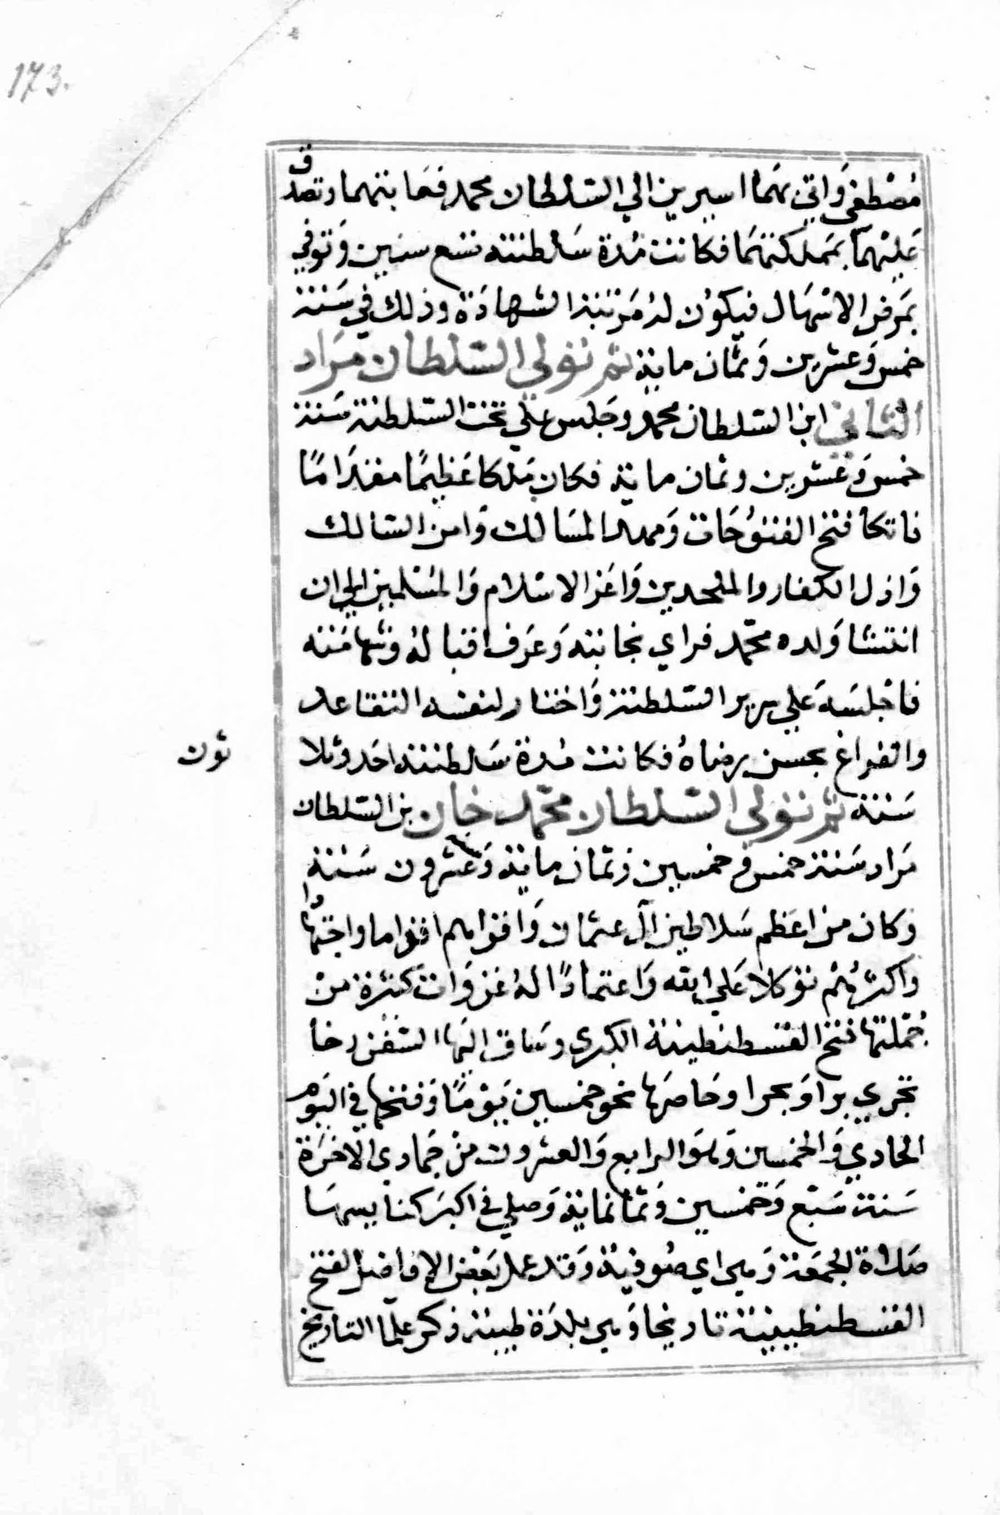 173.
مصطفى واتي بهما اسيرين الي السلطان محمد فعفا بتهما وتصدق
عليهما بمملكتهما فكانت مدة سلطنته تسع سنين وتوفي
بمرض الاسهال فيكون له مرتبة الشهادة وذلك في سنة
خمس وعشرين وثمان مائة ثم تولي السلطان مراد
الثاني ابن السلطان محمد وجلس علي تخت السلطنة سنة
خمس وعشرين وثمان مائة فكان ملكا عظيما مقداما
فاتكا فتح الفتوحات ومهد المسالك وامن السالك
واذل الكفار والملحدين واعز الاسلام والمسلمين الي ان
انتشا ولده محمد فراي نجابته وعرف اقباله وشهامته
فاجلسه علي سرير السلطنة واختار لنفسه التقاعد
والفراغ بحسن رضاه فكانت مدة سلطنته احد وثلا
ثون
سنة ثم تولي السلطان محمد خان بن السلطان
مراد سنة خمس وخمسين وثمان مائة وعشرون سنة
وكان من اعظم سلاطين آل عثمان واقواهم اقواما واجتهادا
واكثرهم توكلا علي الله واعتمادا له غزوات كثيرة من
جملتها فتح القسطنطينية الكبري وساق اليها السفن رخا
تجري برا وبحرا وحاصرها نحو خمسين يوما وفتحها في اليوم
الحادي والخمسين وهو الرابع والعشرون من جمادي الاخرة
سنة سبع وخمسين وثمانمائة وصلي في اكبر كنايسها
صلاة الجمعة وهي اي صوفية وقد عمل بعض الافاضل لفتح
القسطنطينية تاريخا وهي بلدة طيبة ذكر علما التاريخ